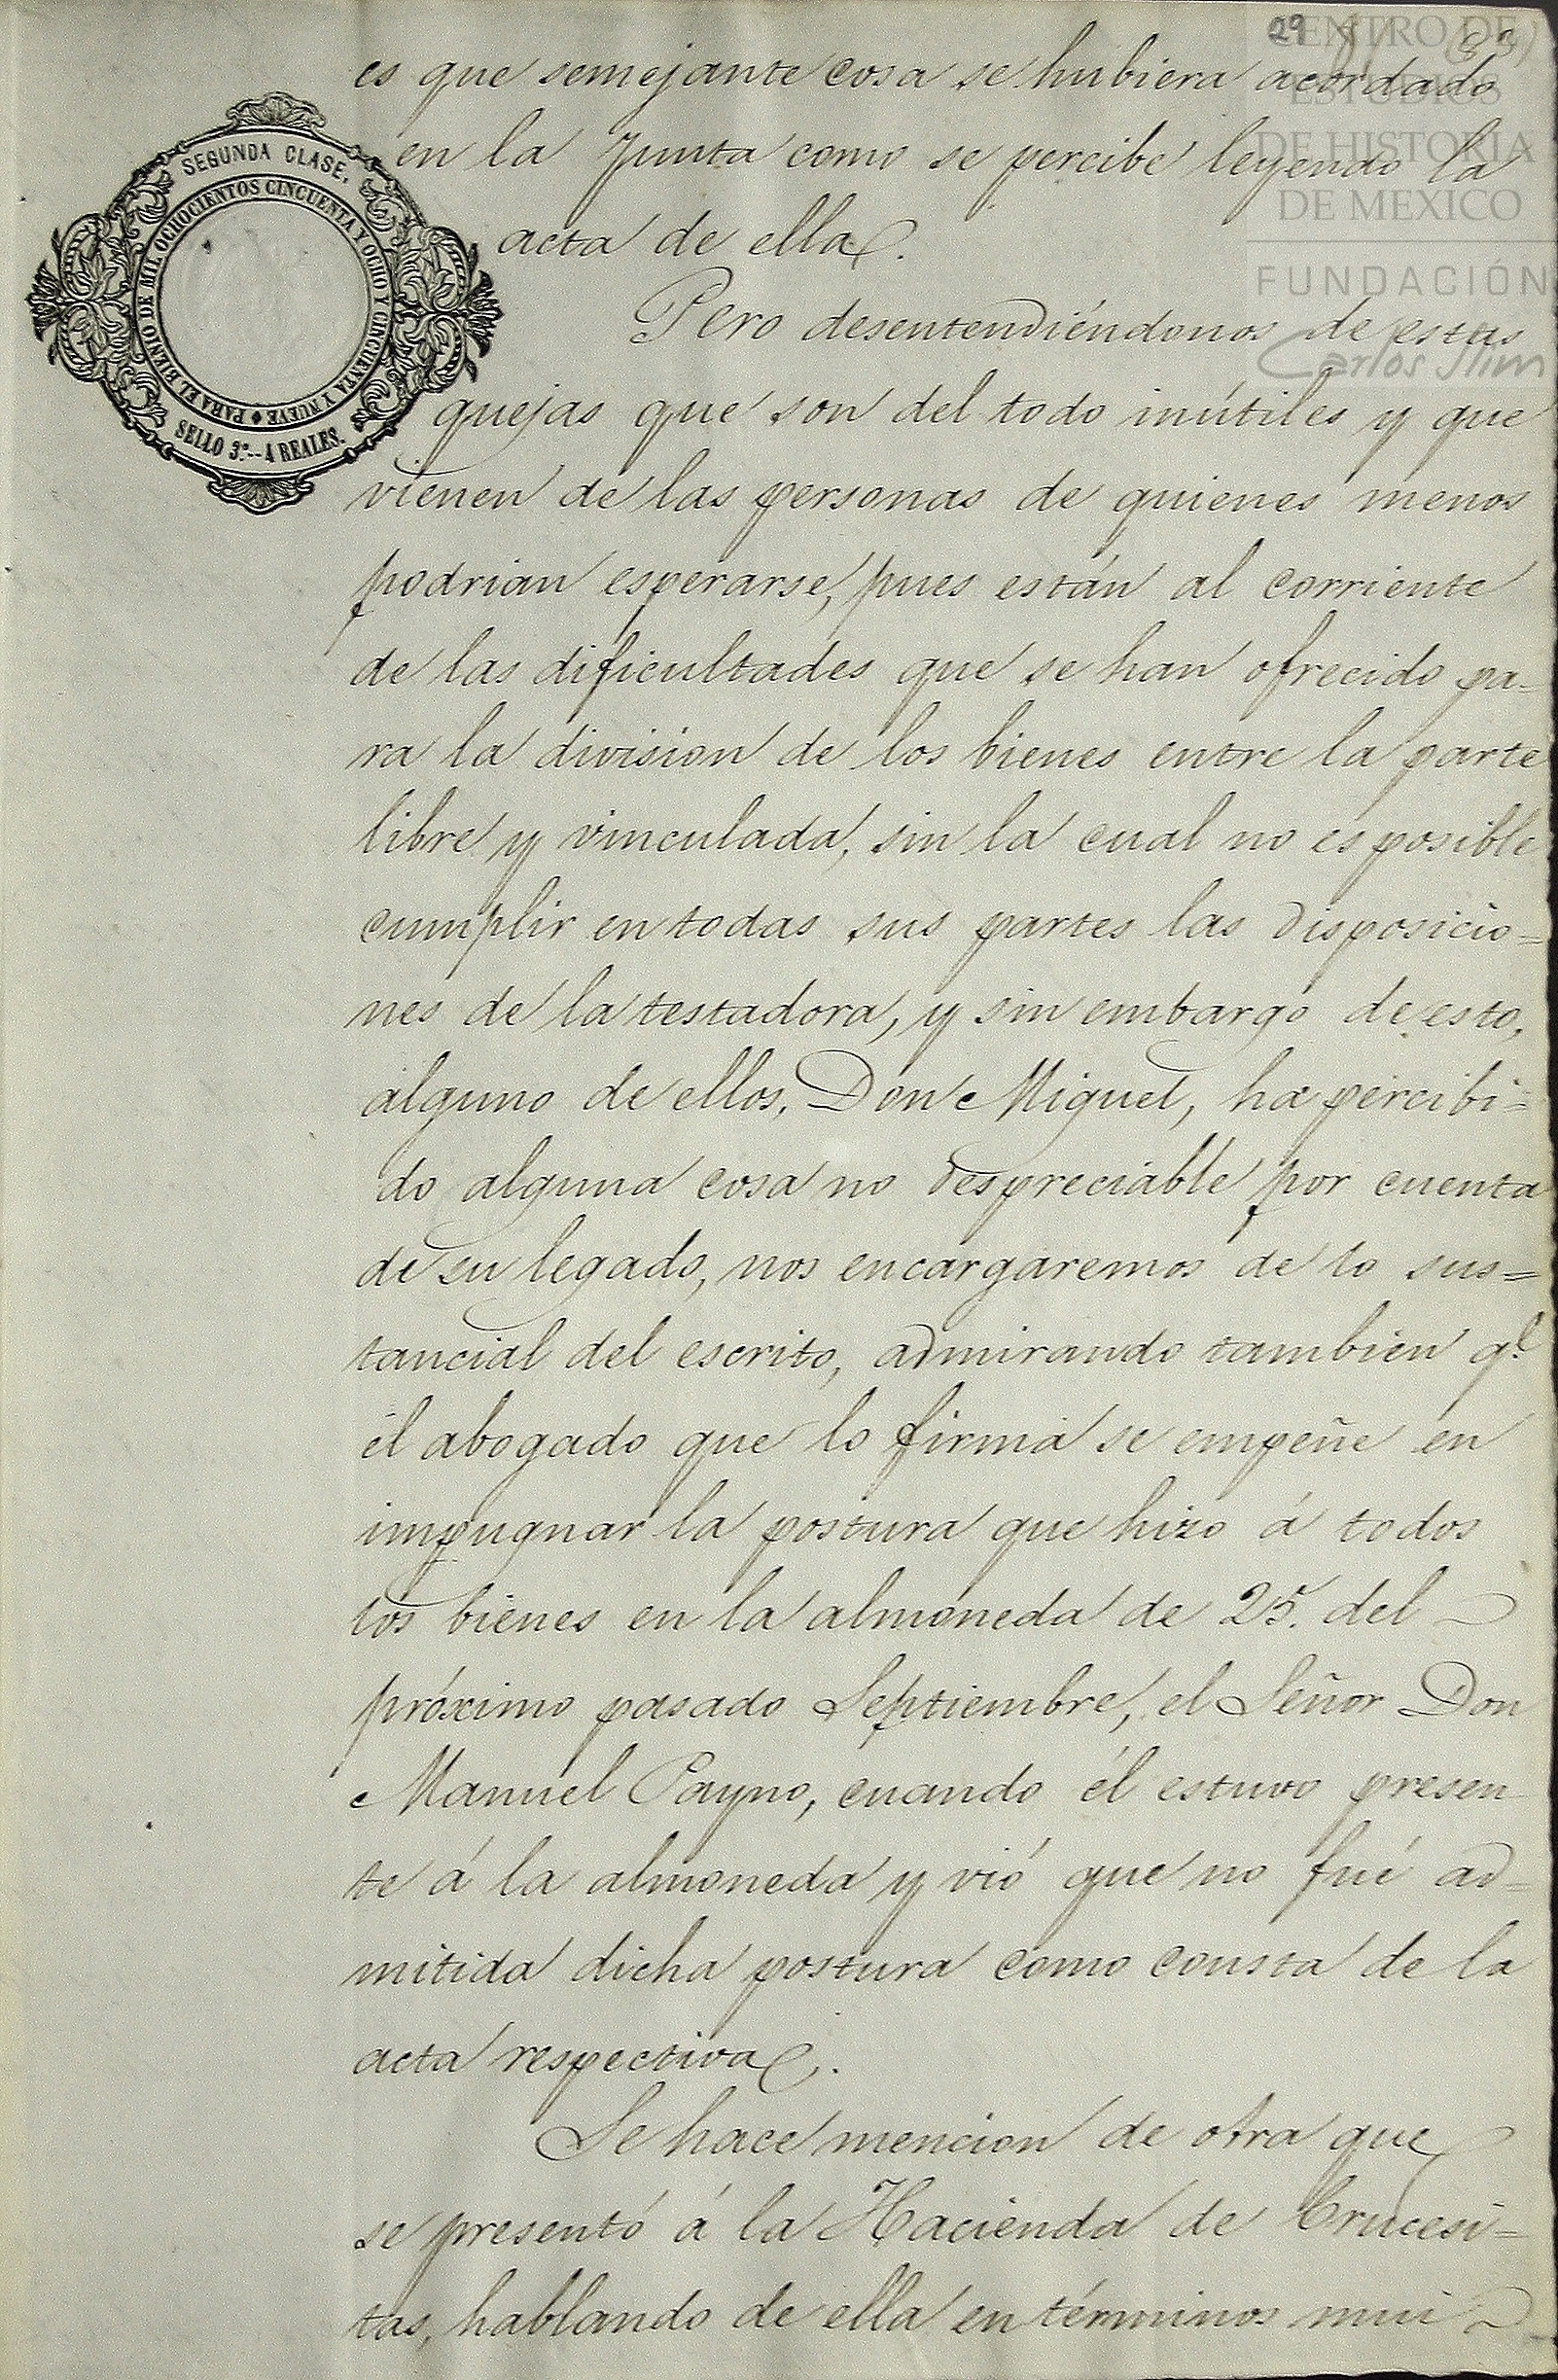 29
CENTRO DE
ESTUDIOS
DE HISTORIA
DE MEXICO
FUNDACIÓN
Carlos Slim
SEGUNDA CLASE.
PARA EL BIENIO DE MIL OCHOCIENTOS CINCUENTA Y OCHO Y CINCUENTA Y NUEVE
SELLO 3.º--4 REALES.
es que semejante cosa se hubiera acordado
en la Junta como se percibe leyendo la
acta de ella.
Pero desentendiéndonos de estas
quejas que son del todo inútiles y que
vienen de las personas de quienes menos
podrian esperarse, pues están al corriente
de las dificultades que se han ofrecido pa-
ra la division de los bienes entre la parte
libre y vinculada, sin la cual no es posible
cumplir en todas sus partes las disposicio=
nes de la testadora, y sin embargo de esto,
alguno de ellos, Don Miguel, ha percibi=
do alguna cosa no despreciable por cuenta
de su legado, nos encargaremos de lo sus=
tancial del escrito, admirando tambien q.e
el abogado que lo firma se empeñe en
impugnar la postura que hizo á todos
los bienes en la almoneda de 25. del
próximo pasado Septiembre, el Señor Don
Manuel Payno, cuando él estuvo presen
te á la almoneda y vió que no fué ad=
mitida dicha postura como consta de la
acta respectiva.
Se hace mencion de otra que
se presentó á la Hacienda de Crucesi=
tas, hablando de ella en términos mui